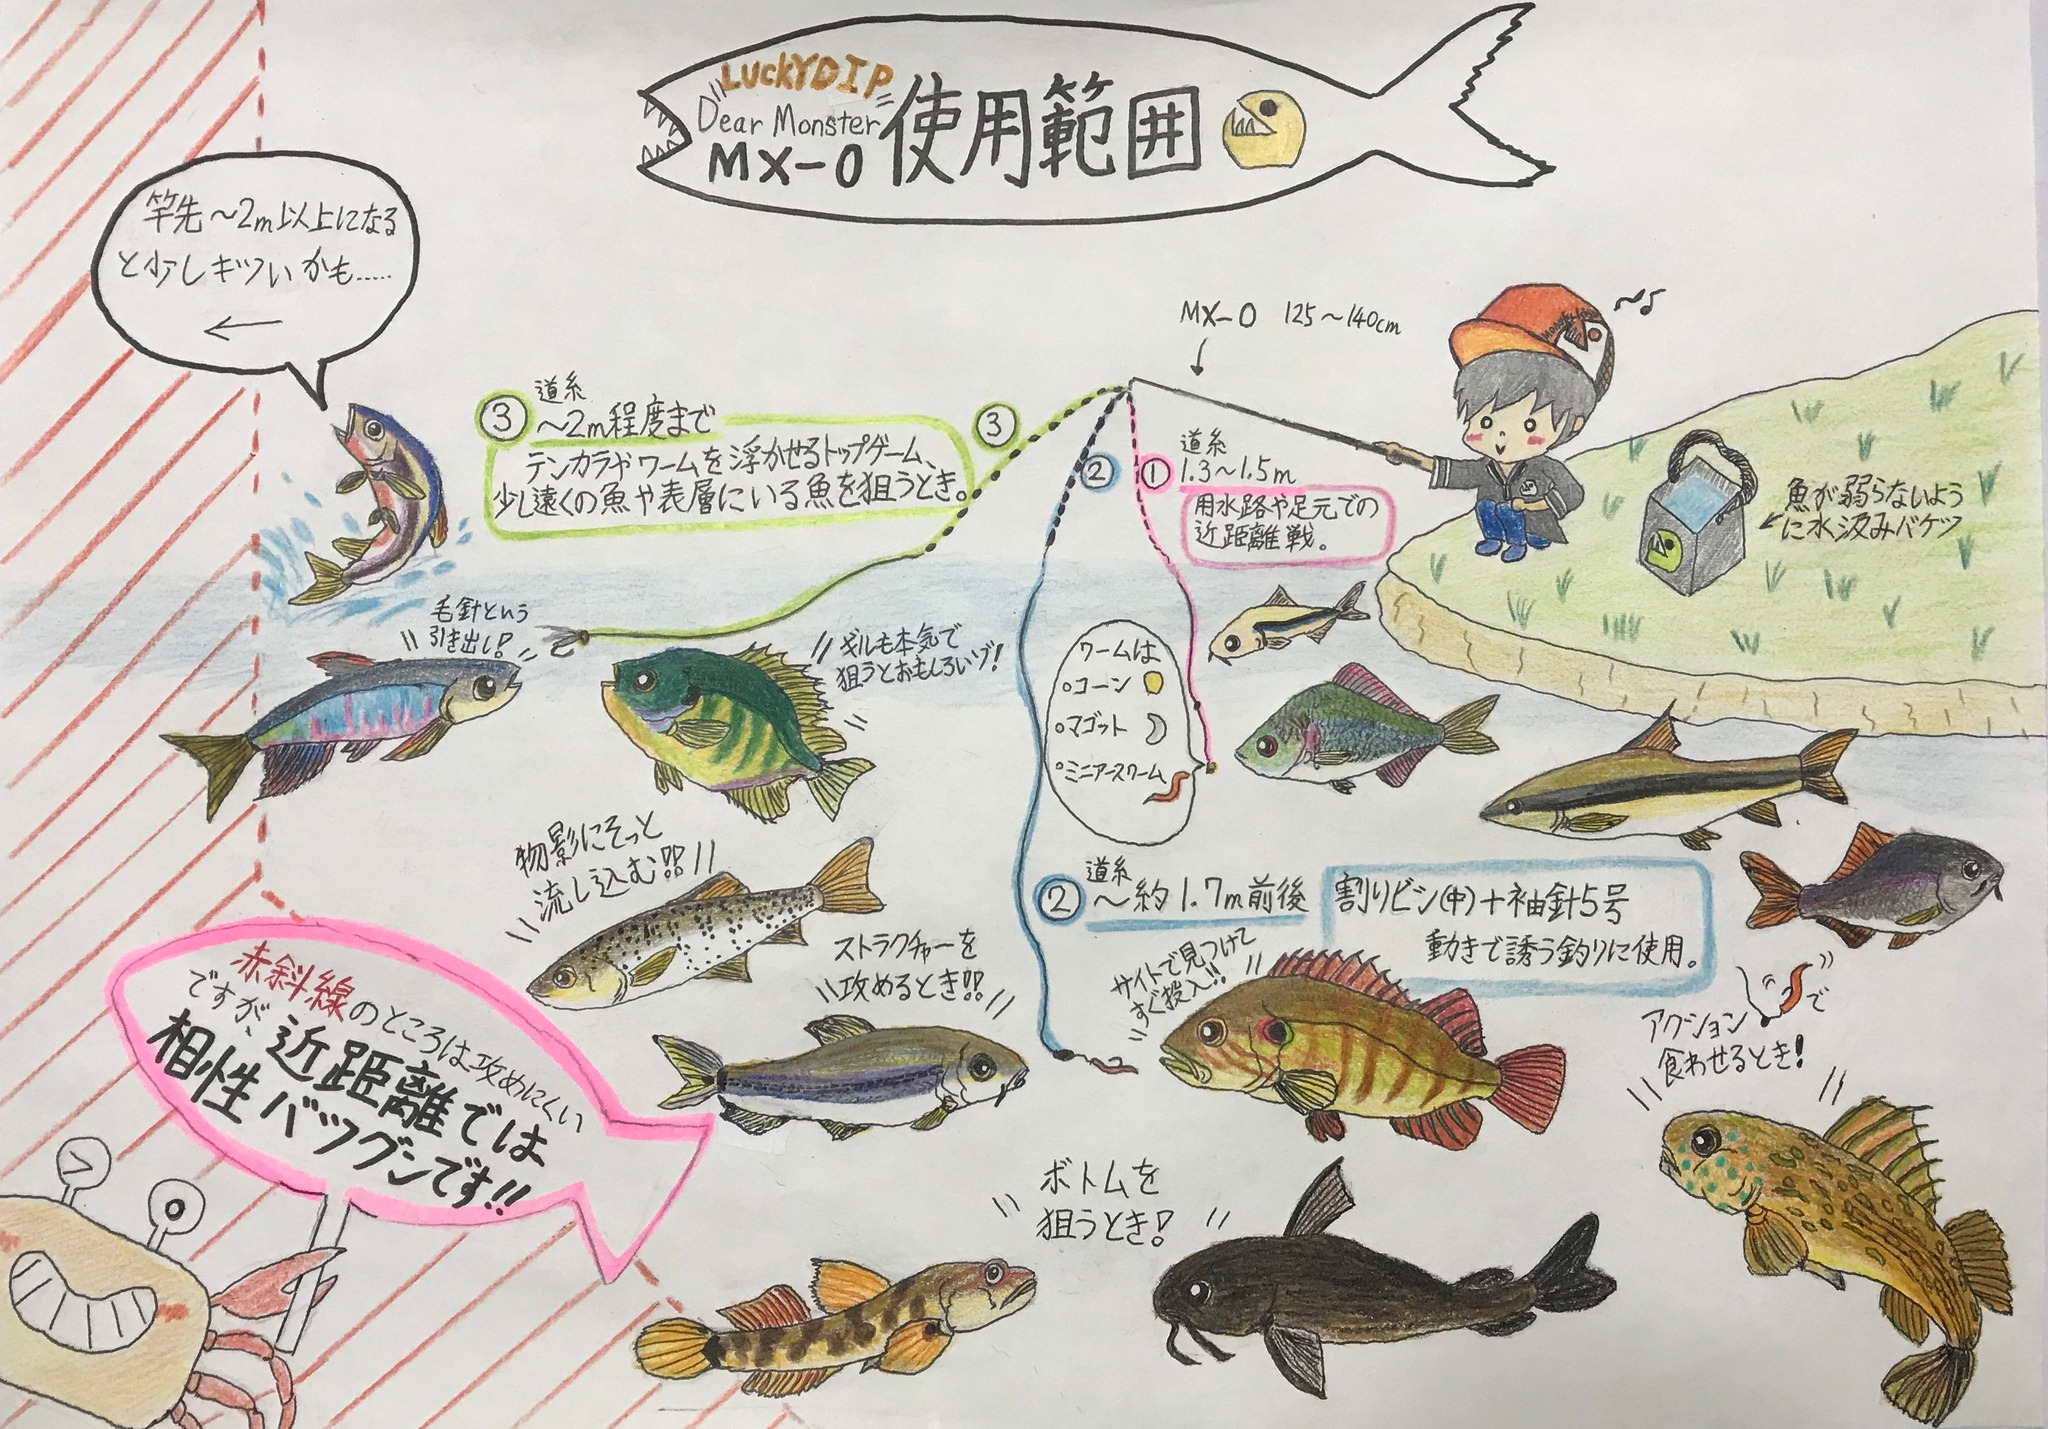 LUCKYDIP
Dear Monster
MX-0 使用範囲
竿先〜2m以上になる
と少しキツいかも……
MX-0 125〜140cm
③ 道糸
〜2m程度まで
テンカラやワームを浮かせるトップゲーム、
少し遠くの魚や表層にいる魚を狙うとき。
③
②
① 道糸
1.3〜1.5m
用水路や足元での
近距離戦。
魚が弱らないよう
に水汲みバケツ
毛針という
引き出し!
ギルも本気で
狙うとおもしろいゾ!
ワームは
○コーン
○マゴット
○ミニアースワーム
物影にそっと
流し込む!!
ストラクチャーを
攻めるとき!!
② 道糸
〜約1.7m前後
割りビシ(中)+袖針5号
動きで誘う釣りに使用。
サイトで見つけて
すぐ投入!!
アクションで
食わせるとき!
赤斜線のところは攻めにくい
ですが、近距離では
相性バツグンです!!
ボトムを
狙うとき!